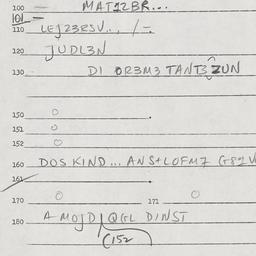 100 MAT12BR...
101
110 LEJ23RSV.., /-.
120 JUDL3N
130 DI OR3M3 TANT3 ZUN
150
151
152
160 DOS KIND... ANS+LOFM7 G82V
161
170 171
180 A MOJD QGL DINST
(152